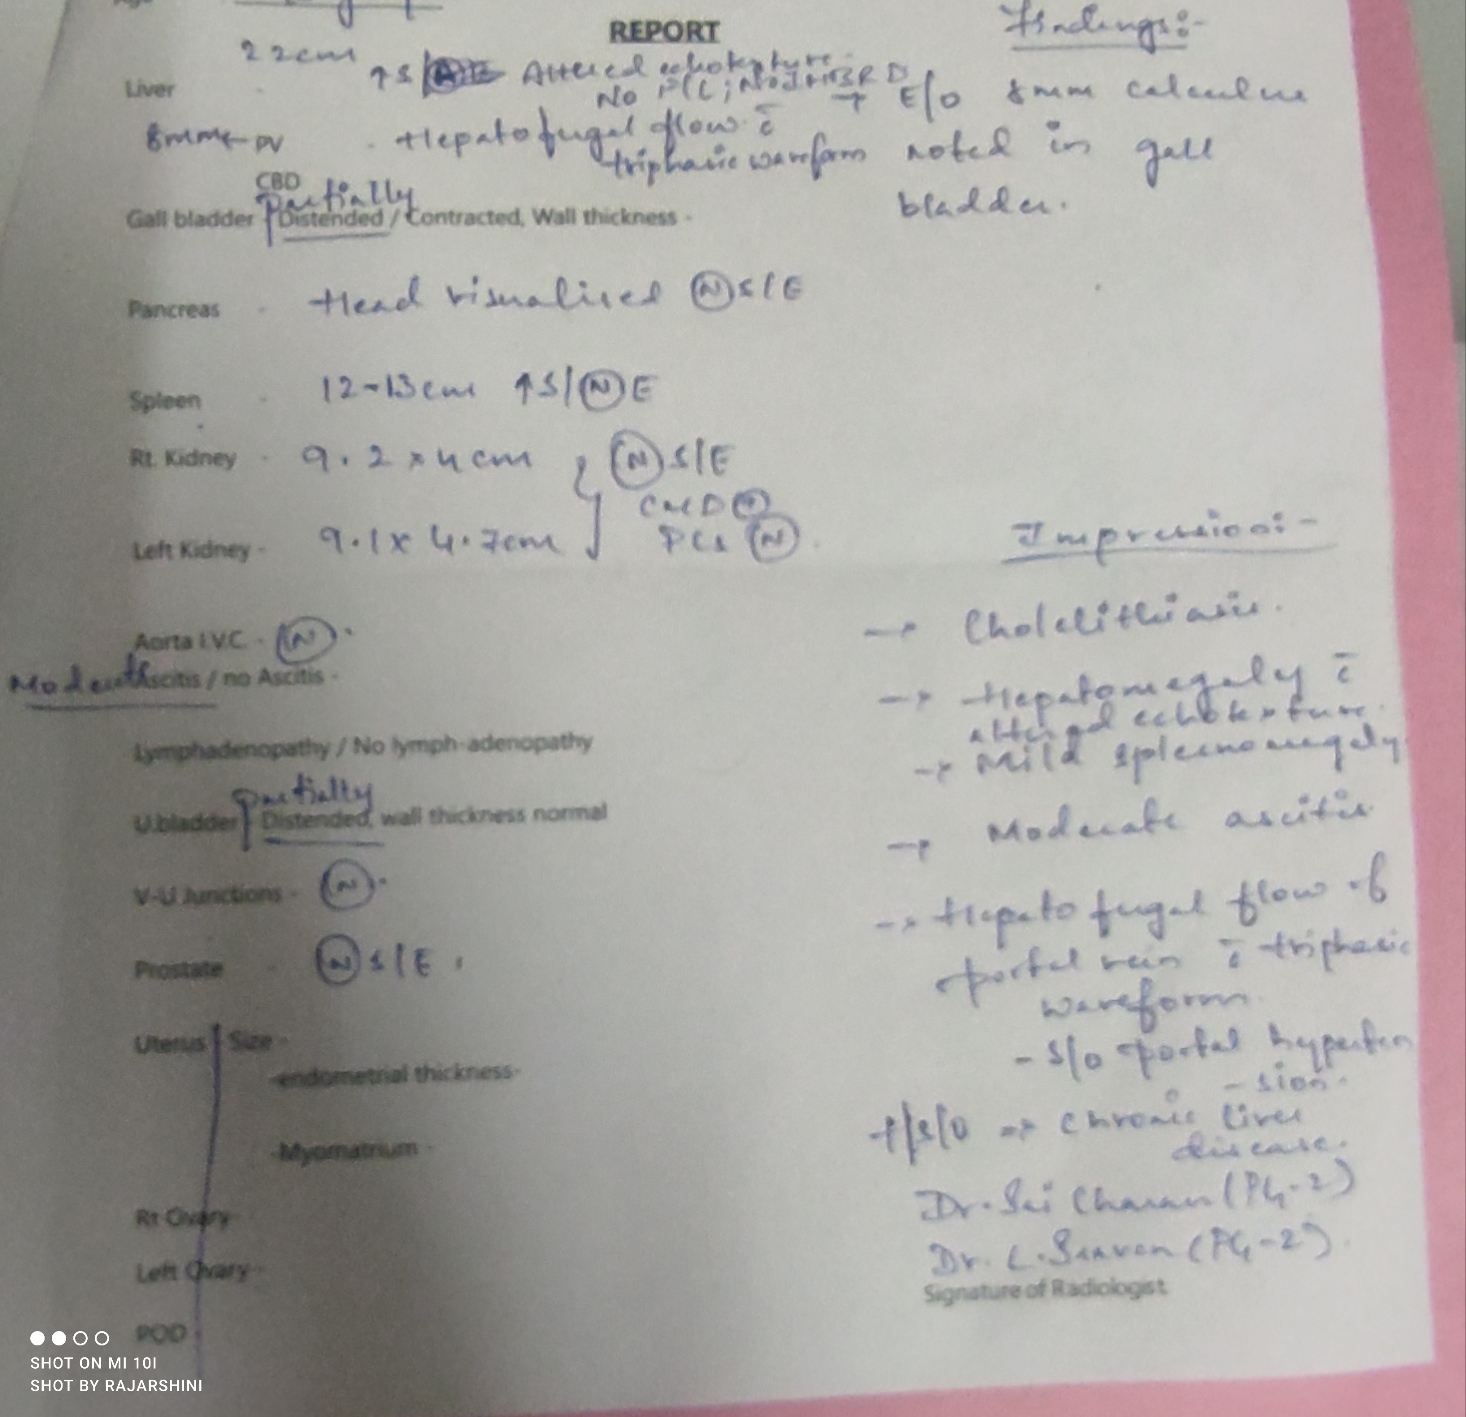 REPORT
Findings:-
22cm
Liver
↑S/ Altered echotexture
No FLL; No IHBRD
→ E/o 8mm calculus
8mm← PV
- Hepatofugal flow c̄
triphasic waveform
noted in gall
bladder.
CBD
Partially
Gall bladder Distended / Contracted, Wall thickness -
Pancreas - Head visualised (N) S/E
Spleen - 12-13cm ↑S/(N) E
Rt. Kidney - 9.2 x 4cm } (N) S/E
CMD (+)
Left Kidney - 9.1 x 4.7cm PCS (N).
Impression:-
Aorta I.V.C. - (N).
→ Cholelithiasis.
Moderate Ascitis / no Ascitis -
→ Hepatomegaly c̄
altered echotexture.
Lymphadenopathy / No lymph-adenopathy
→ Mild spleenomegaly
Partially
U.bladder Distended, wall thickness normal
→ Moderate ascitis
V-U Junctions - (N).
→ Hepatofugal flow of
portal vein c̄ triphasic
waveform.
Prostate - (N) S/E.
- S/o portal hyperten
- sion.
Uterus Size -
-endometrial thickness-
f/s/o → chronic liver
disease.
-Myomatrium -
Dr. Sai Charan (PG-2)
Rt Ovary-
Dr. L. Sravan (PG-2).
Left Ovary-
Signature of Radiologist
POD
SHOT ON MI 10I
SHOT BY RAJARSHINI